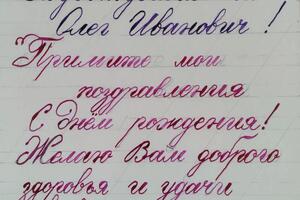 Олег Иванович!
"Примите мои
поздравления
С днём рождения!
Желаю Вам доброго
здоровья и удачи